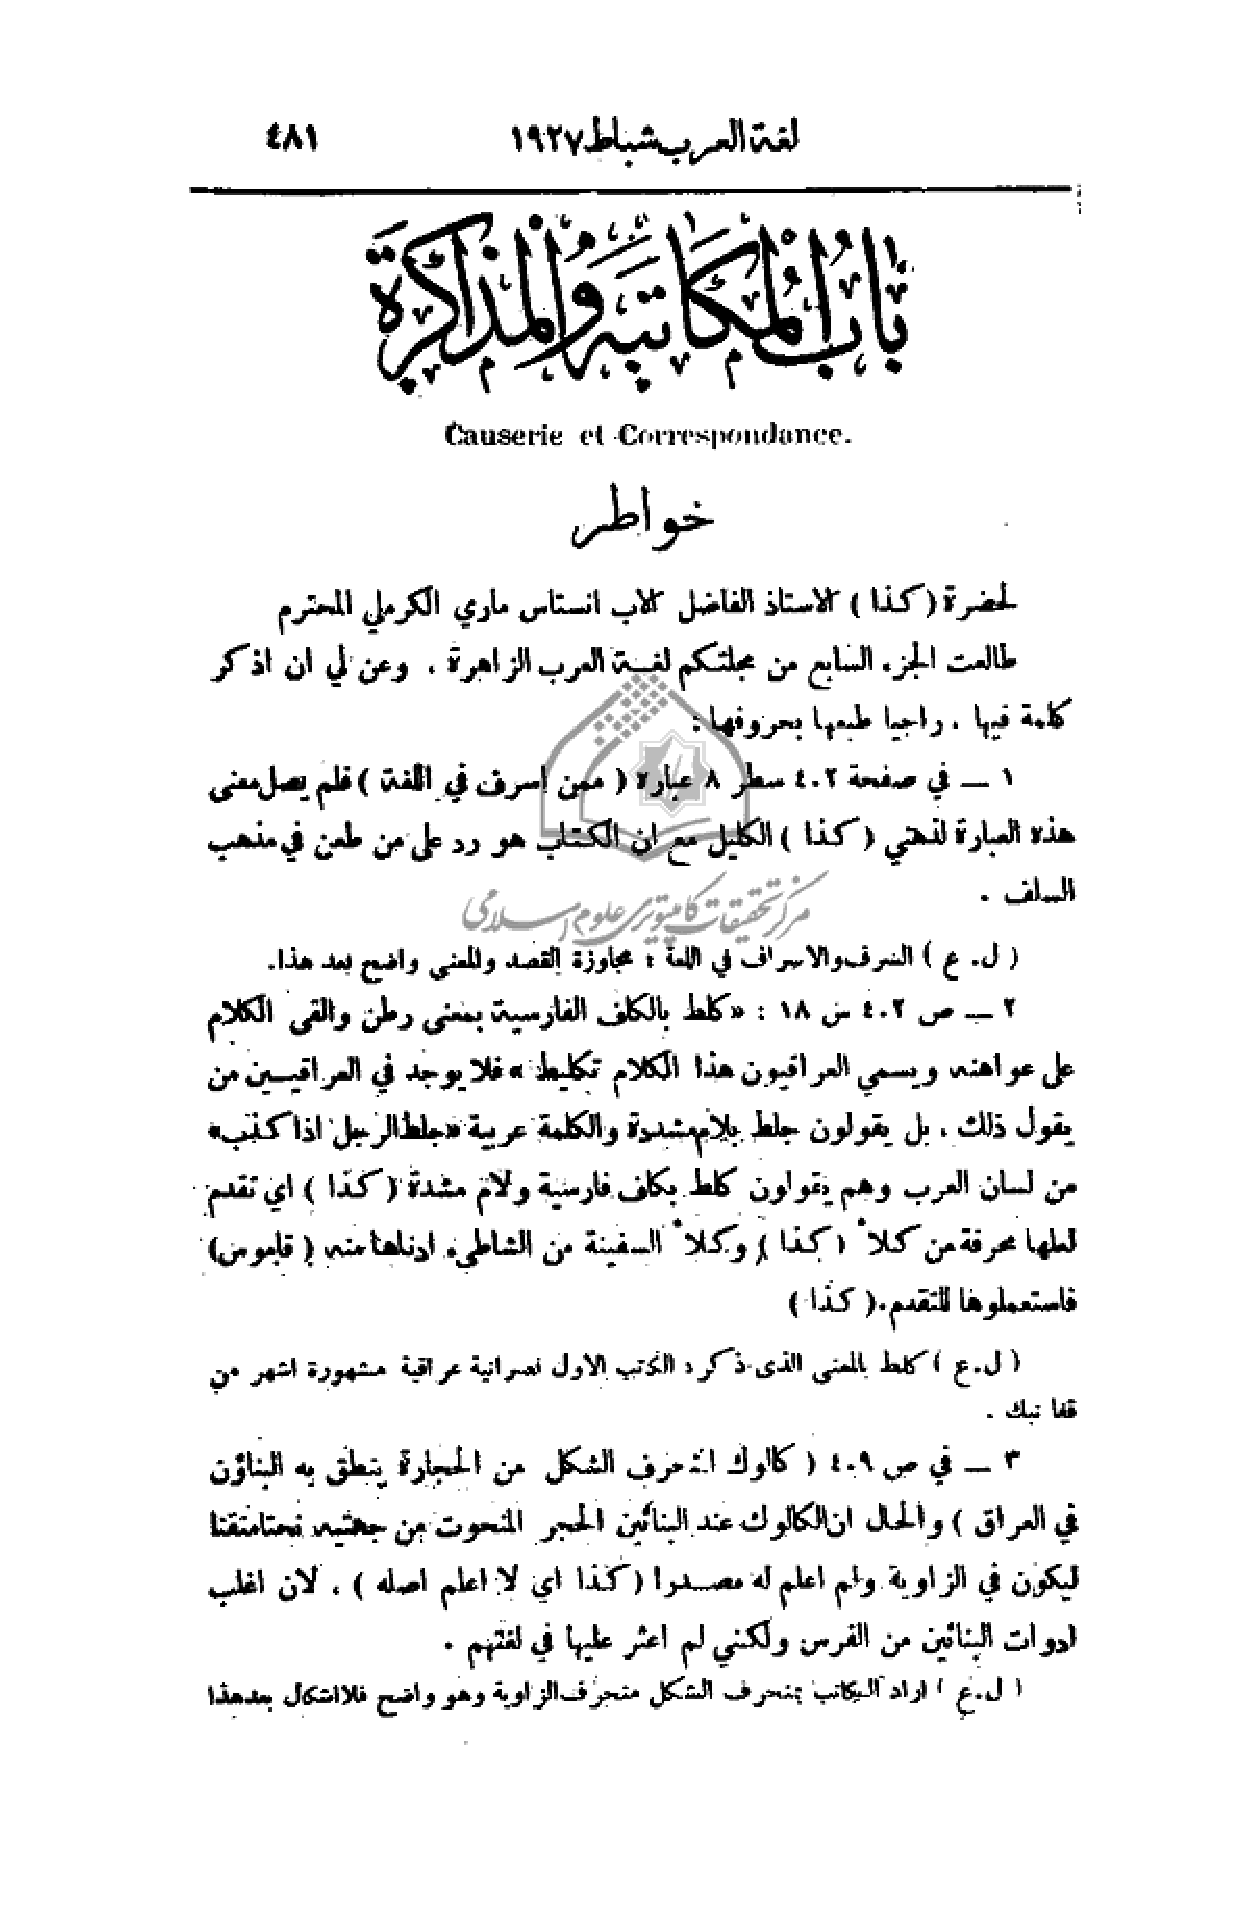 لغة العرب شباط ١٩٢٧ ٤٨١
باب المكاتبة والمذاكرة
Causerie et Correspondance.
خواطر
لحضرة ( كذا ) الاستاذ الفاضل الاب انستاس ماري الكرملي المحترم
طالعت الجزء السابع من مجلتكم لغة العرب الزاهرة . وعن لي ان اذكر
كلمة فيها . راجيا طبعها بحروفها :
١ — في صفحة ٤٠٢ سطر ٨ عبارة ( ممن اسرف في اللغة ) فلم يصل معنى
هذه العبارة لذهني ( كذا ) الكليل مع ان الكتاب هو رد على من طعن في مذهب
السلف .
مركز تحقيقات كامپيوتري علوم اسلامي
( ل. ع ) السرف والاسراف في اللغة : مجاوزة القصد والمعنى واضح بعد هذا.
٢ — ص ٤٠٢ س ١٨ : «كلط بالكاف الفارسية بمعنى رطن والقى الكلام
على عواهنه ويسمي العراقيون هذا الكلام تكليط» فلا يوجد في العراقيين من
يقول ذلك . بل يقولون جلط بلام مشددة والكلمة عربية «جلط الرجل اذا كذب»
من لسان العرب وهم يقولون كلط بكاف فارسية ولام مشدة ( كذا ) اي تقدم
لعلها محرفة من كلأ ( كذا ) وكلأ السفينة من الشاطيء ادناها منه ( قاموس)
فاستعملوها للتقدم.( كذا )
( ل.ع ) كلط بالمعنى الذي ذكره الكاتب الاول نصرانية عراقية مشهورة اشهر من
قفا نبك .
٣ — في ص ٤٠٩ ( كالوك المنحرف الشكل من الحجارة ينطق به البناؤن
في العراق ) والحال ان الكالوك عند البنائين الحجر المنحوت من جهتيه نحتا متقنا
ليكون في الزاوية ولم اعلم له مصدرا ( كذا اي لا اعلم اصله ) . لان اغلب
ادوات البنائين من الفرس ولكنني لم اعثر عليها في لغتهم .
( ل.ع ) اراد الكاتب بمنحرف الشكل منحرف الزاوية وهو واضح فلا اشكال بعد هذا